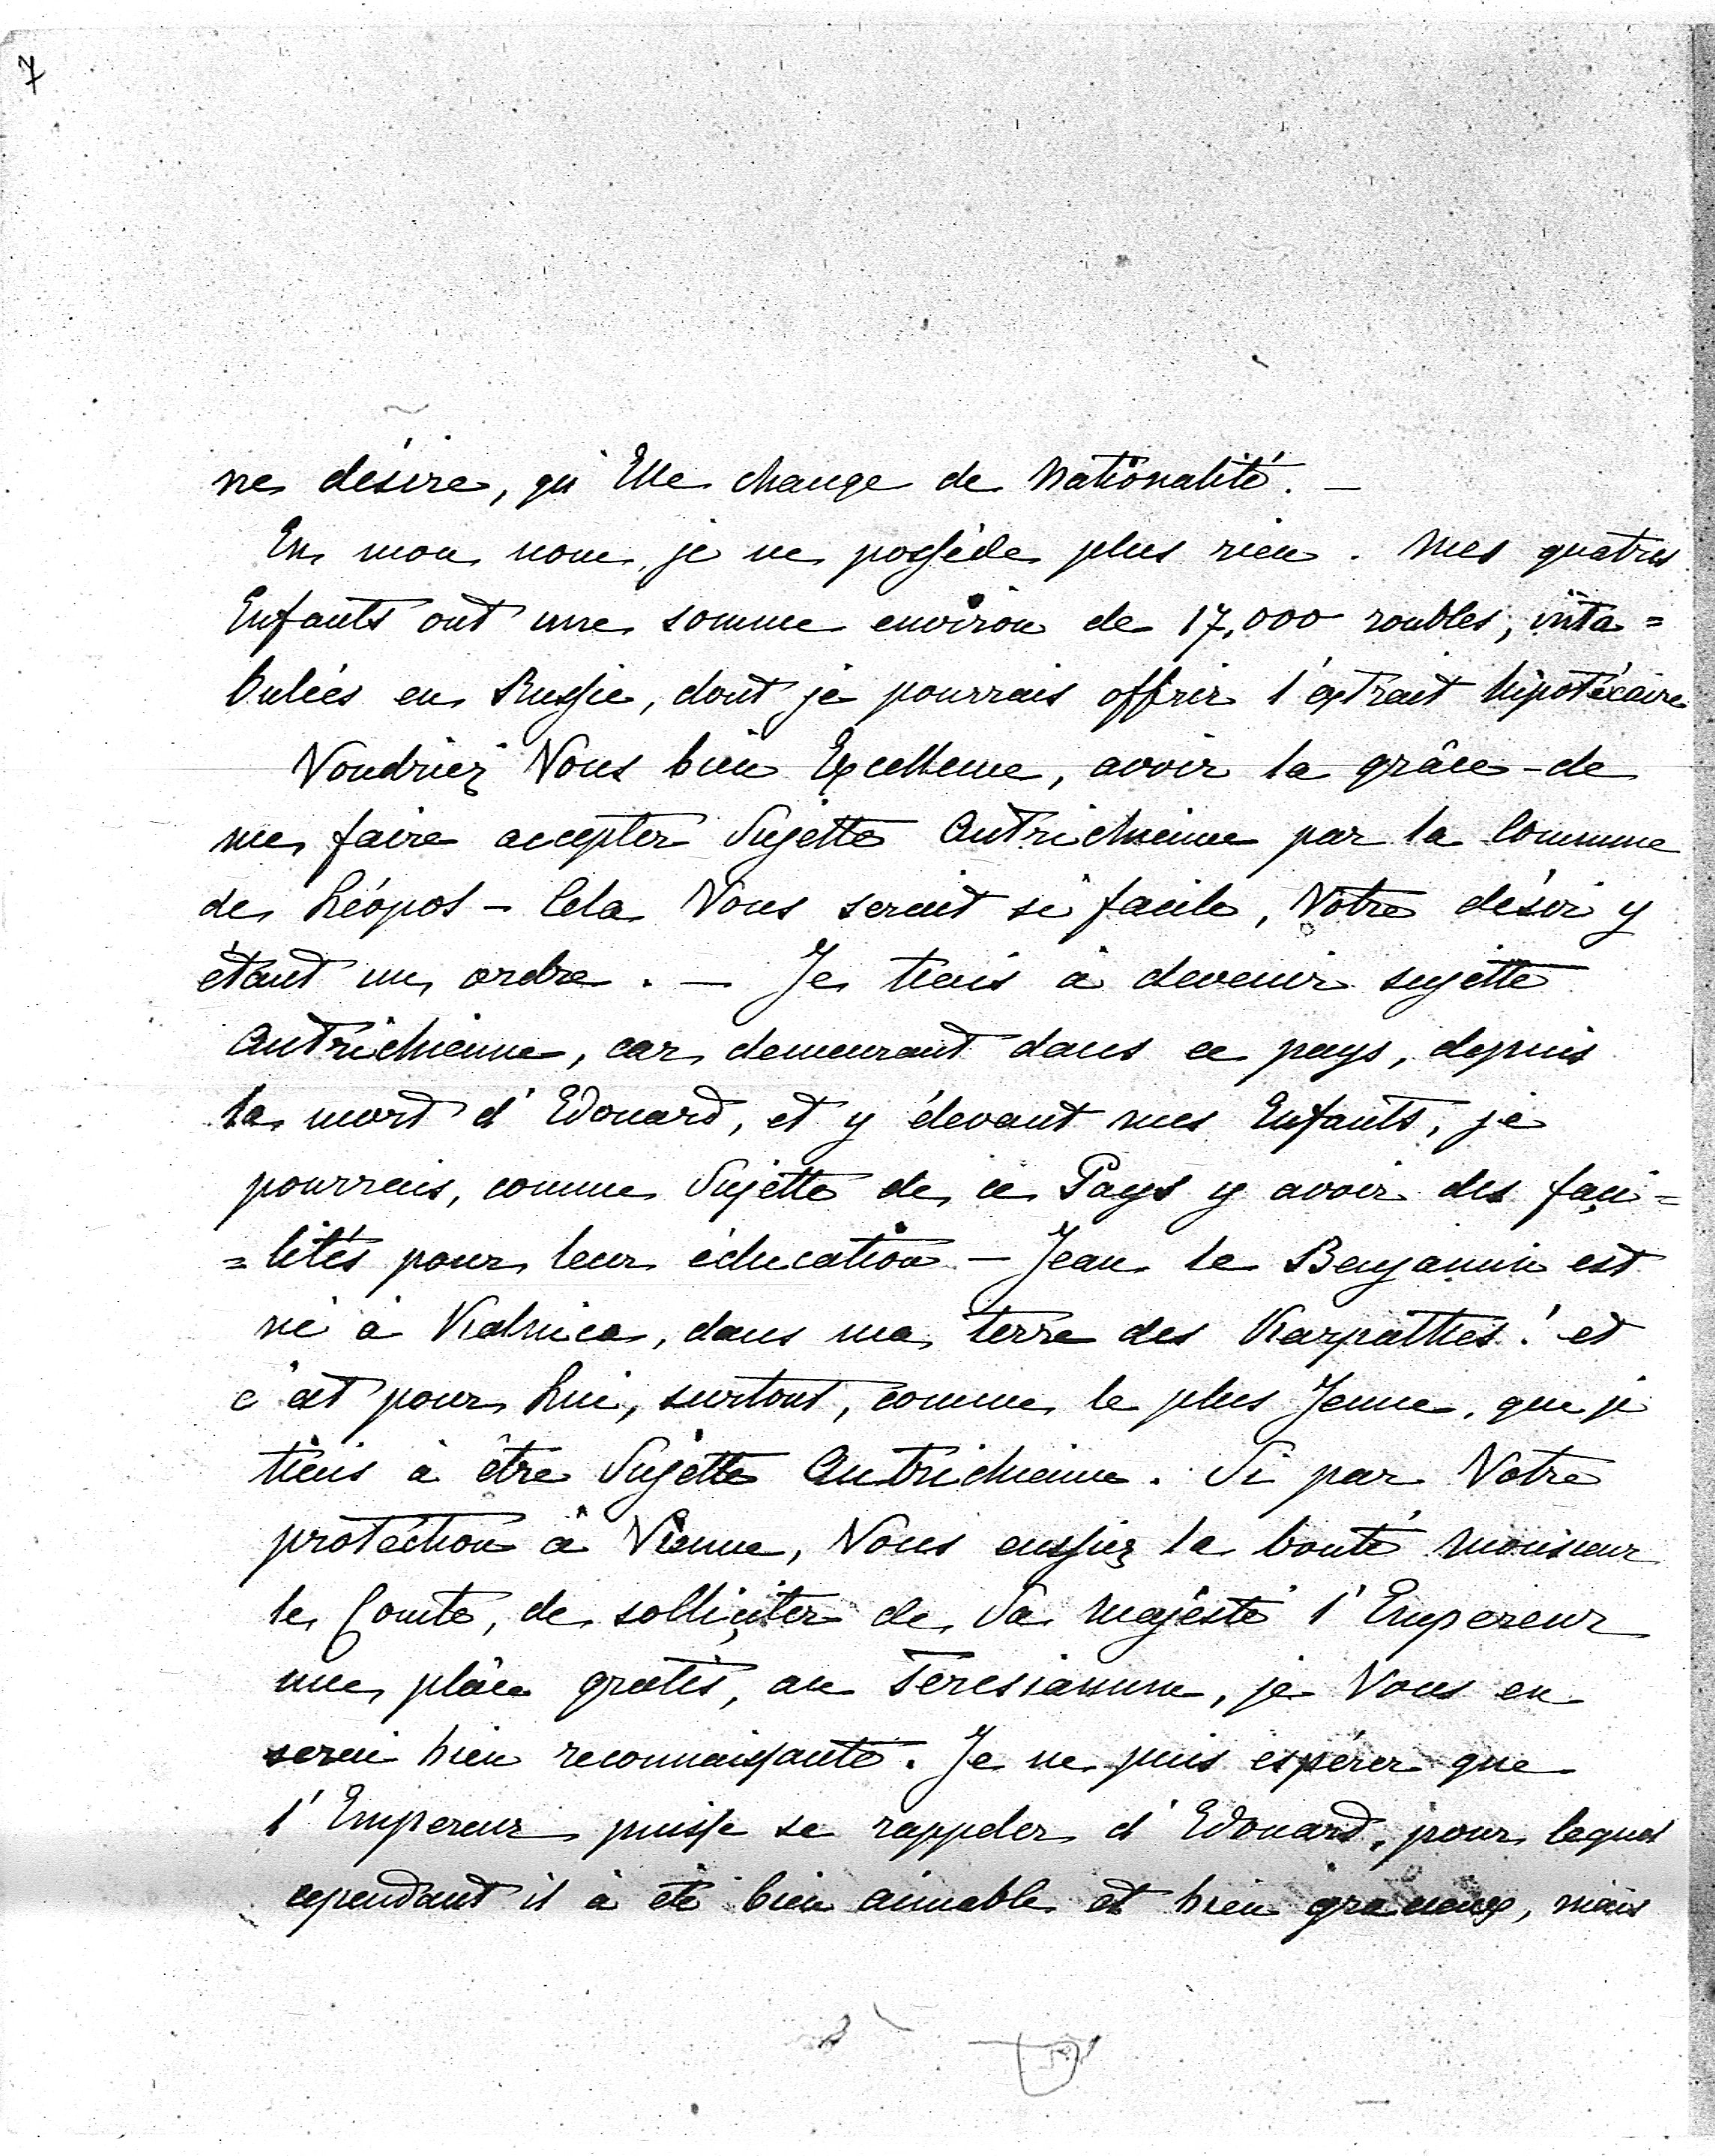 7
ne désire, qu'Elle change de Nationalité. —
En mon nom, je ne possède plus rien. Mes quatres
Enfants ont une somme environ de 17,000 roubles, inta=
bulées en Russie, dont je pourrais offrir l'extrait hipotécaire
Voudriez Vous bien Excellence, avoir la grâce - de
me faire accepter Sujette Autrichienne par la Commune
de Léopol - Cela Vous serait si facile, Votre désir y
étant un ordre. — Je tiens à devenir sujette
Autrichienne, car demeurant dans ce pays, depuis
la mort d'Edouard, et y élevant mes Enfants, je
pourrais, comme Sujette de ce Pays y avoir des faci=
=lités pour leur éducation — Jean le Benjamin est
né à Kalnica, dans ma terre des Karpathes! et
c'est pour Lui, surtout, comme le plus Jeune, que je
tiens à être Sujette Autrichienne. Si par Votre
protéction à Vienne, Vous eussiez la bonté Monsieur
le Comte, de solliciter de Sa Majésté l'Empereur
une plâce gratis, au Teresianum, je Vous en
serai bien reconnaissante. Je ne puis espérer que
l'Empereur puisse se rappeler d'Edouard, pour lequel
cependant il à été bien aimable et bien gracieux, mais